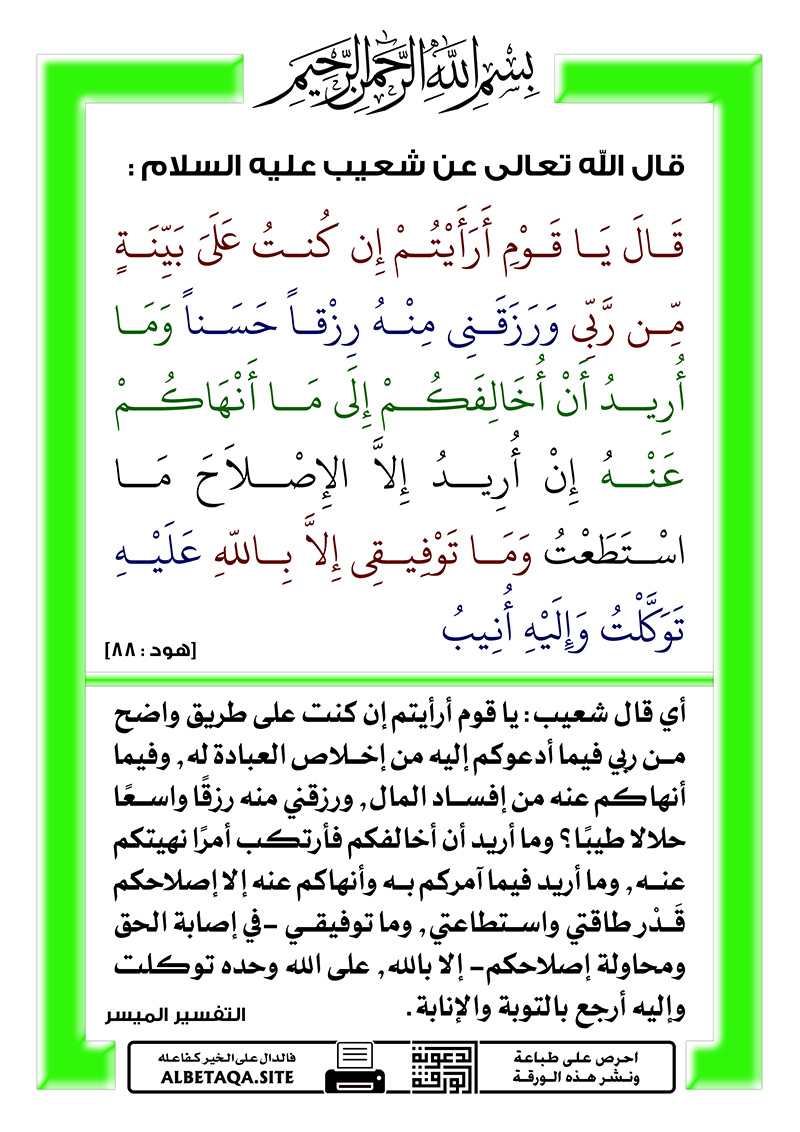 بِسْمِ اللَّهِ الرَّحْمَنِ الرَّحِيمِ
قال الله تعالى عن شعيب عليه السلام :
قَالَ يَا قَوْمِ أَرَأَيْتُمْ إِن كُنتُ عَلَىَ بَيِّنَةٍ
مِّن رَّبِّي وَرَزَقَنِي مِنْهُ رِزْقاً حَسَناً وَمَا
أُرِيدُ أَنْ أُخَالِفَكُمْ إِلَى مَا أَنْهَاكُمْ
عَنْهُ إِنْ أُرِيدُ إِلاَّ الإِصْلاَحَ مَا
اسْتَطَعْتُ وَمَا تَوْفِيقِي إِلاَّ بِاللّهِ عَلَيْهِ
تَوَكَّلْتُ وَإِلَيْهِ أُنِيبُ
[هود : ٨٨]
أي قال شعيب: يا قوم أرأيتم إن كنت على طريق واضح
من ربي فيما أدعوكم إليه من إخلاص العبادة له, وفيما
أنهاكم عنه من إفساد المال, ورزقني منه رزقًا واسعًا
حلالا طيبًا؟ وما أريد أن أخالفكم فأرتكب أمرًا نهيتكم
عنه, وما أريد فيما آمركم به وأنهاكم عنه إلا إصلاحكم
قَدْر طاقتي واستطاعتي, وما توفيقي -في إصابة الحق
ومحاولة إصلاحكم- إلا بالله, على الله وحده توكلت
وإليه أرجع بالتوبة والإنابة.
التفسير الميسر
احرص على طباعة
ونشر هذه الورقة
الورقة الدعوية
فالدال على الخير كفاعله
ALBETAQA.SITE